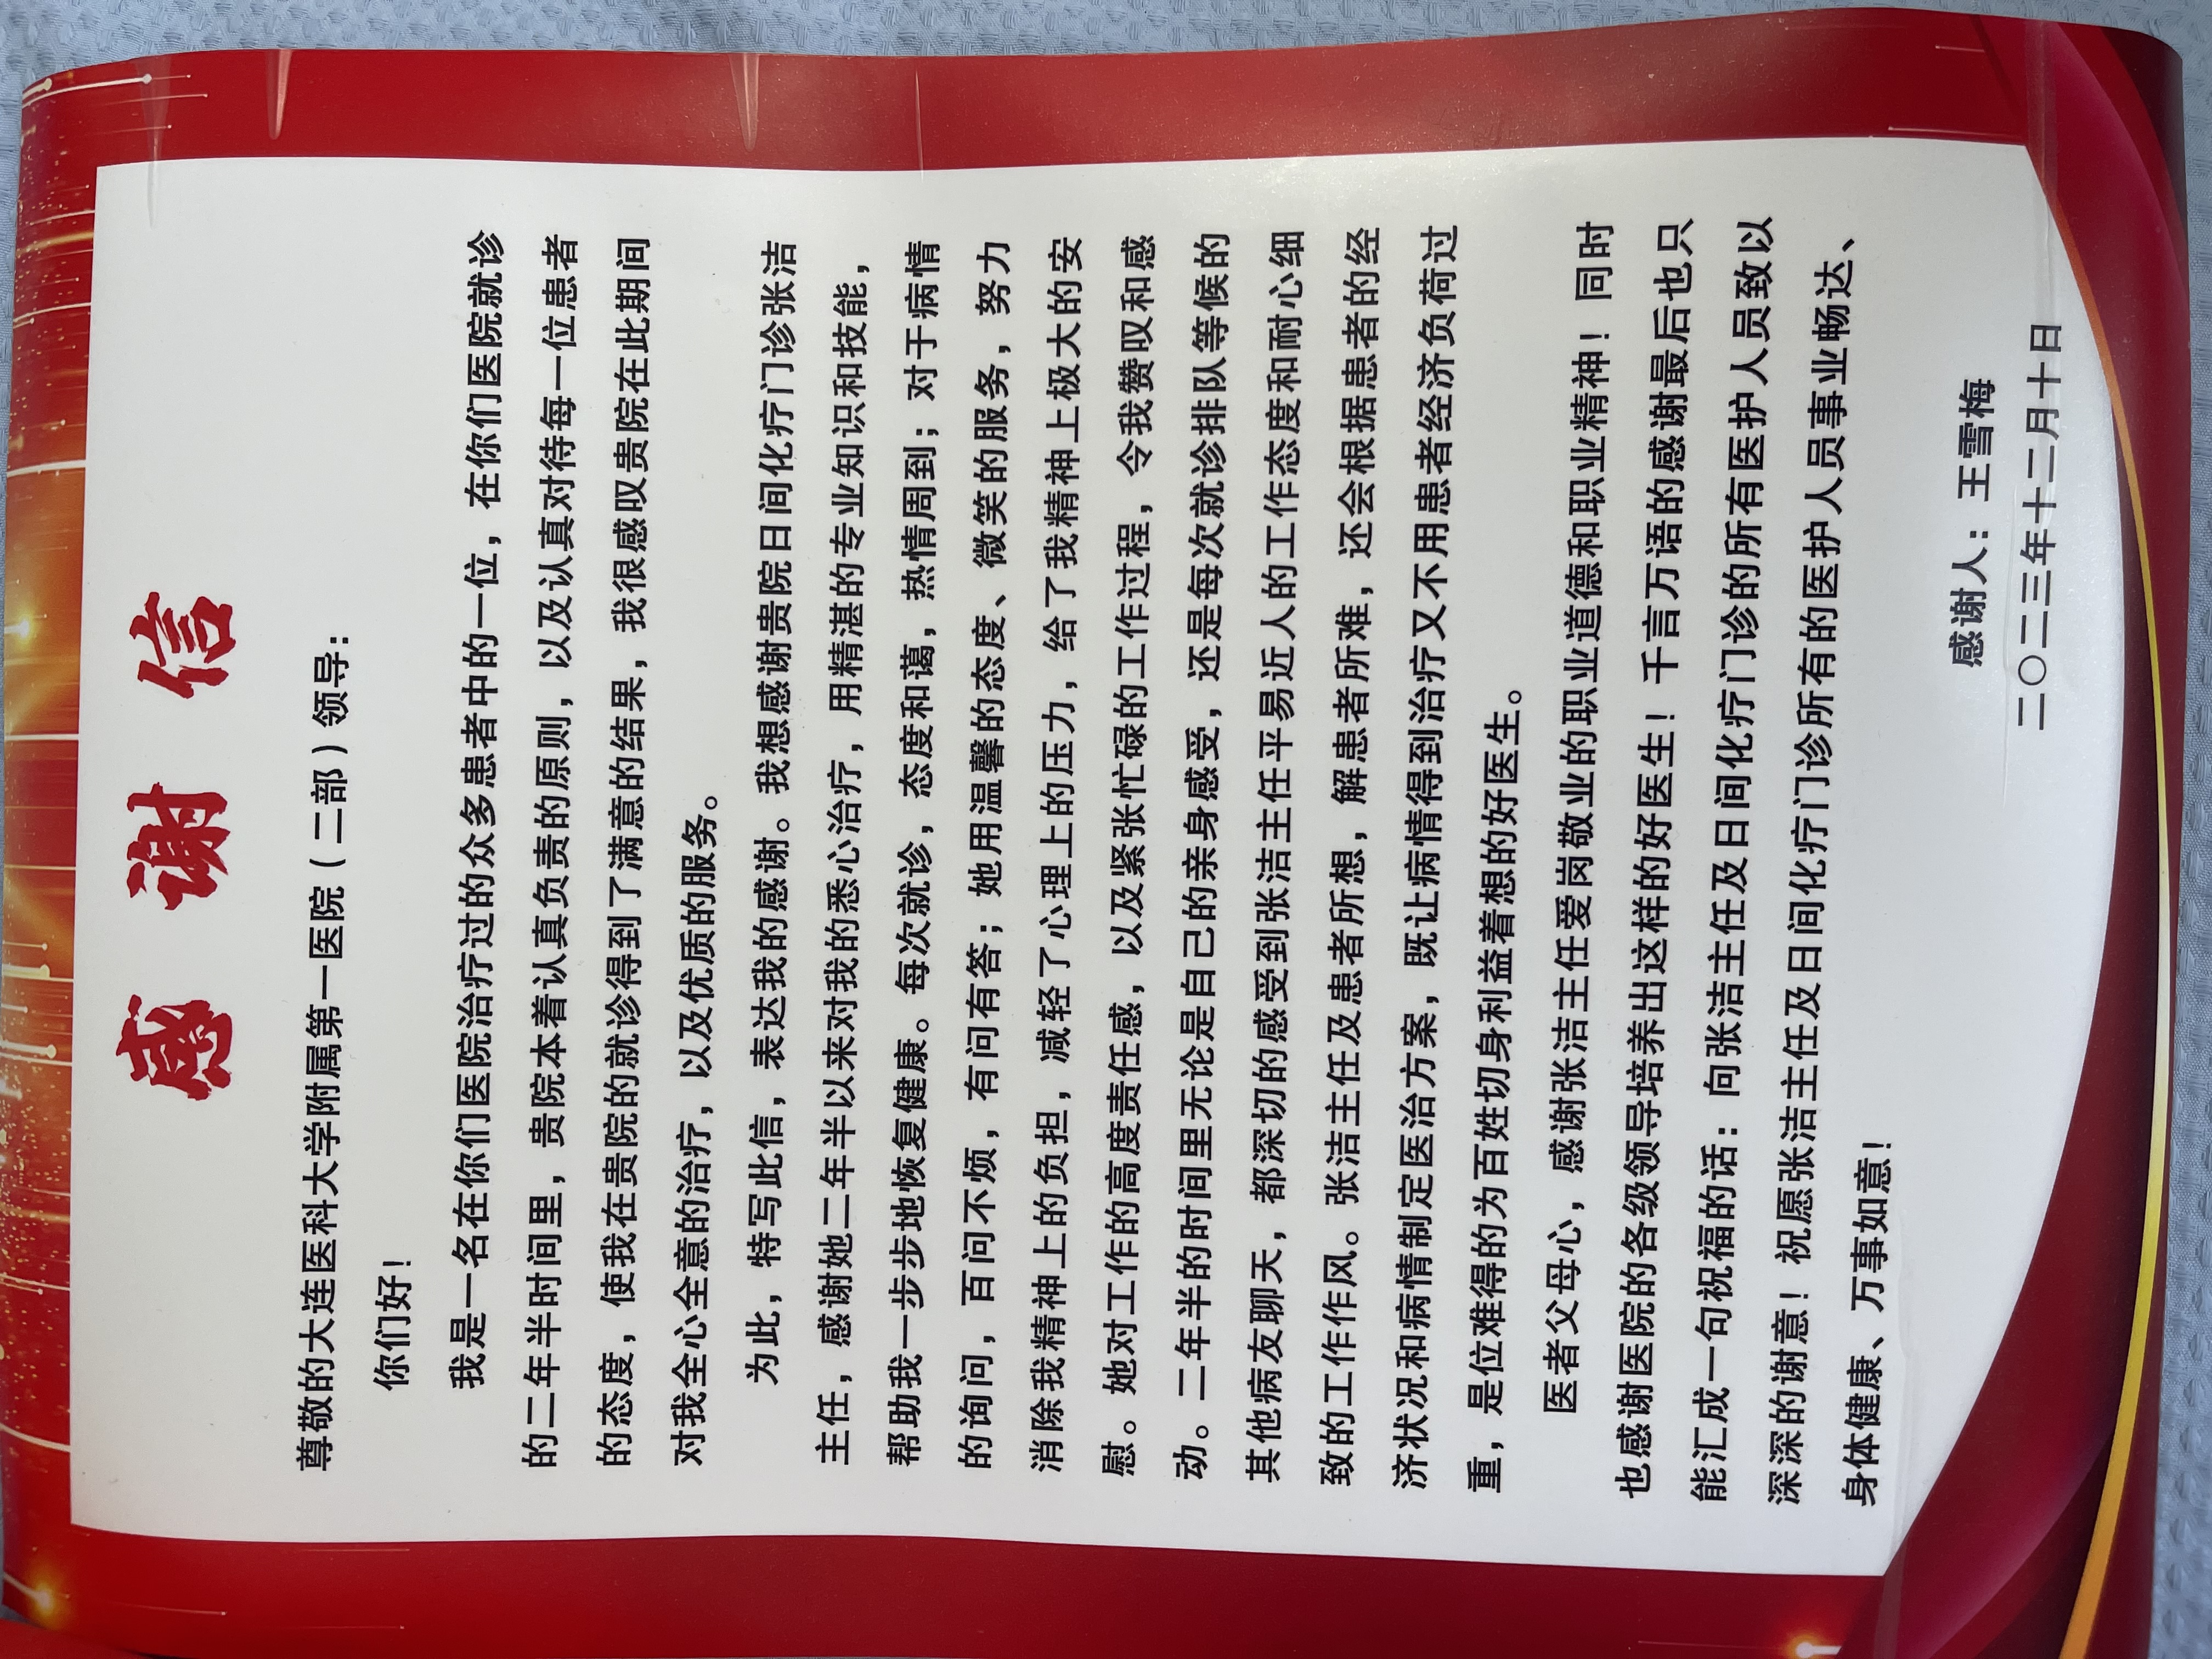 感谢信
尊敬的大连医科大学附属第一医院(二部)领导：
你们好！
我是一名在你们医院治疗过的众多患者中的一位，在你们医院就诊
的二年半时间里，贵院本着认真负责的原则，以及认真对待每一位患者
的态度，使我在贵院的就诊得到了满意的结果，我很感叹贵院在此期间
对我全心全意的治疗，以及优质的服务。
为此，特写此信，表达我的感谢。我想感谢贵院日间化疗门诊张洁
主任，感谢她二年半以来对我的悉心治疗，用精湛的专业知识和技能，
帮助我一步步地恢复健康。每次就诊，态度和蔼，热情周到；对于病情
的询问，百问不烦，有问有答；她用温馨的态度、微笑的服务，努力
消除我精神上的负担，减轻了心理上的压力，给了我精神上极大的安
慰。她对工作的高度责任感，以及紧张忙碌的工作过程，令我赞叹和感
动。二年半的时间里无论是自己的亲身感受，还是每次就诊排队等候的
其他病友聊天，都深切的感受到张洁主任平易近人的工作态度和耐心细
致的工作作风。张洁主任及患者所想，解患者所难，还会根据患者的经
济状况和病情制定医治方案，既让病情得到治疗又不用患者经济负荷过
重，是位难得的为百姓切身利益着想的好医生。
医者父母心，感谢张洁主任爱岗敬业的职业道德和职业精神！同时
也感谢医院的各级领导培养出这样的好医生！千言万语的感谢最后也只
能汇成一句祝福的话：向张洁主任及日间化疗门诊的所有医护人员致以
深深的谢意！祝愿张洁主任及日间化疗门诊所有的医护人员事业畅达、
身体健康、万事如意！
感谢人：王雪梅
二〇二三年十二月十日